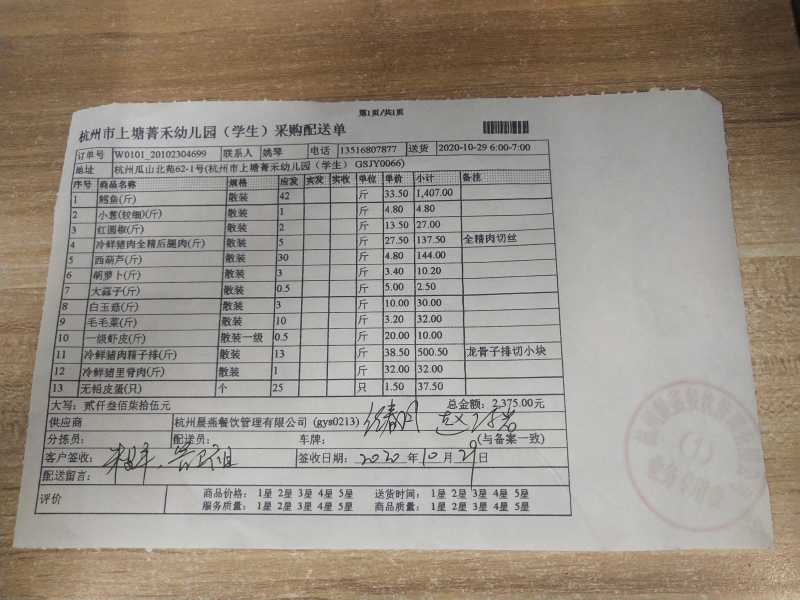 第1页/共1页
杭州市上塘菁禾幼儿园（学生）采购配送单
订单号 W0101_20102304699 联系人 姚琴 电话 13516807877 送货 2020-10-29 6:00-7:00
地址 杭州瓜山北苑62-1号(杭州市上塘菁禾幼儿园（学生） GSJY0066)
序号 商品名称 规格 应发 实发 实收 单位 单价 小计 备注
1 鳕鱼(斤) 散装 42 斤 33.50 1,407.00
2 小葱(较细)(斤) 散装 1 斤 4.80 4.80
3 红圆椒(斤) 散装 2 斤 13.50 27.00
4 冷鲜猪肉全精后腿肉(斤) 散装 5 斤 27.50 137.50 全精肉切丝
5 西葫芦(斤) 散装 30 斤 4.80 144.00
6 胡萝卜(斤) 散装 3 斤 3.40 10.20
7 大蒜子(斤) 散装 0.5 斤 5.00 2.50
8 白玉菇(斤) 散装 3 斤 10.00 30.00
9 毛毛菜(斤) 散装 10 斤 3.20 32.00
10 一级虾皮(斤) 散装一级 0.5 斤 20.00 10.00
11 冷鲜猪肉精子排(斤) 散装 13 斤 38.50 500.50 龙骨子排切小块
12 冷鲜猪里脊肉(斤) 散装 1 斤 32.00 32.00
13 无铅皮蛋(只) 个 25 只 1.50 37.50
大写: 贰仟叁佰柒拾伍元 总金额: 2,375.00元
供应商 杭州晨燕餐饮管理有限公司 (gys0213)
分拣员: 配送员: 车牌: (与备案一致)
客户签收: 签收日期: 2020 年 10 月 29 日
配送留言:
评价 商品价格: 1星 2星 3星 4星 5星 送货时间: 1星 2星 3星 4星 5星
服务质量: 1星 2星 3星 4星 5星 商品质量: 1星 2星 3星 4星 5星
(1)
业务专用章